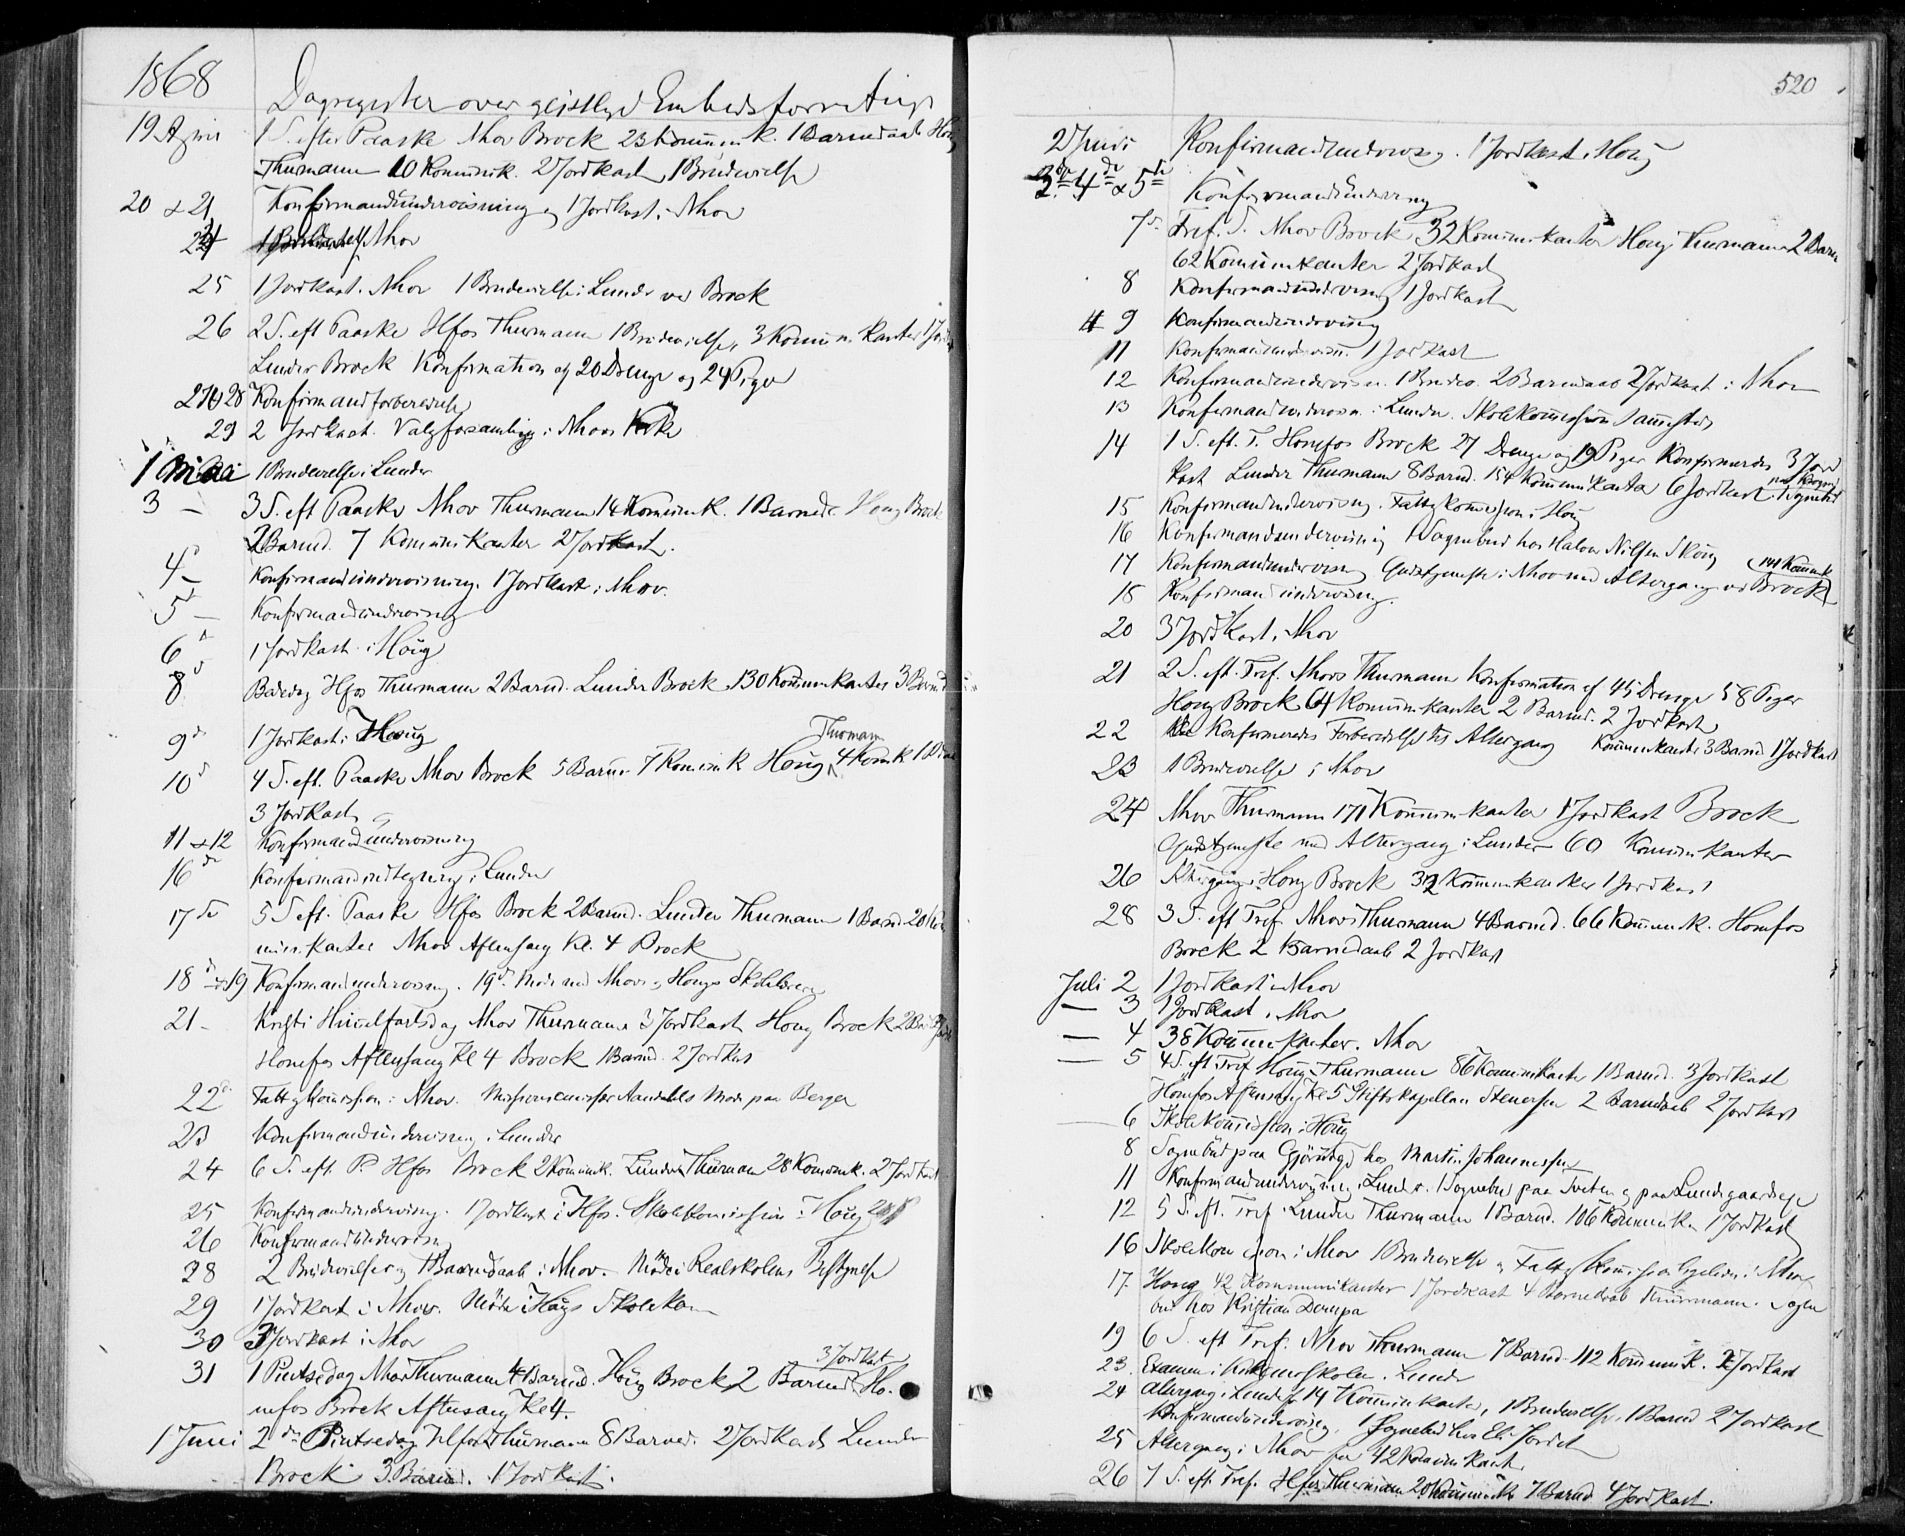 1868
Dagregister over geistlige Embedsforretninger
19 April 1 S. efter Paaske Nhov Brock 23 Kommunik. 1 Barnedaab Houg
Thurmann 10 Kommunik. 2 Jordkast, 1 Brudevielse
20 & 21 Konfirmandundervisning og 1 Jordkast i Nhov
24 Nhov
25 1 Jordkast. Nhov 1 Brudevielse i Lunder ved Brock
26 2 S. eft Paaske Hfos Thurmann 1 Brudevielse, 3 Kommunikanter
Lunder Brock Konfirmation af 20 Drenge og 24 Piger
27 28 Konfirmandforberedelse
29 2 Jordkast. Valgforsamling i Nhovs Kirke
1 Mai 1 Brudevielse i Lunder
3 - 3 S. eft Paaske Nhov Thurmann 14 Kommunik. 1 Barned. Houg Brock
2 Barned. 7 Kommunikanter 2 Jordkast.
4 - Konfirmandundervisning. 1 Jordkast i Nhov.
5 - Konfirmandundervisning
6 1 Jordkast i Houg
8 Bededag Hfos Thurmann 2 Barned. Lunder Brock 130 Kommunikanter 3 Barned
9d 1 Jordkast i Houg
Thurmann
10d 4 S. eft. Paaske Nhov Brock 5 Barned. 7 Kommunik Houg 4 Komk
3 Jordkast
11 & 12 Konfirmandundervisning
16de Konfirmandundervisning i Lunder
17de 5 S eft. Paaske Hfos Brock 2 Barned. Lunder Thurmann 1 Barned 20 Kom
munikanter Nhov Aftensang Kl. 4 Brock
18d 19 Konfirmandundervisning. 19d Møde med Nhovs og Hougs Skole
21 - Kristi Himmelfartsdag Nhov Thurmann 3 Jordkast Houg Brock 2 Bar
Hønefos Aftensang Kl 4 Brock 1 Barned. 2 Jordkast
22d Fattigkommission i Nhov. Møde paa Berger
23 Konfirmandundervisning i Lunder
24 6 S. eft. P. Hfos Brock 2 Kommunik. Lunder Thurmann 28 Kommunik. 2 Jordkast
25 Konfirmandundervisning. 1 Jordkast i Hfos. Skolekommission i Houg
26 Konfirmandundervisn
28 2 Brudevielser og 1 Barnedaab i Nhov. Møde i Realskolens Bestyrelse
29 1 Jordkast i Nhov. Møde i Hougs Skolekom
30 3 Jordkast i Nhov
3 Jordkast
31 1 Pintsedag Nhov Thurmann 4 Barned. Houg Brock 2 Barned Hø-
nefos Brock Aftensang Kl 4.
1 Juni 2den Pintsedag Hfos Thurmann 8 Barned. 2 Jordkast Lunder
Brock 3 Barned. 1 Jordkast.
520
2 Juni Konfirmandundervisn. 1 Jordkast i Houg
3die 4de & 5te Konfirmandundervisng
7d Tref. S. Nhov Brock 32 Kommunikanter Houg Thurmann 2 Barn
62 Kommunikanter 2 Jordkast
8 Konfirmandundervisng 1 Jordkast
9 Konfirmandundervisng
11 Konfirmandundervisn. 1 Jordkast
12 Konfirmandundervisn. 1 Brudev. 2 Barnedaab 2 Jordkast i Nhov
13 Konfirmandundervisn. i Lunder. Skolekommission sammesteds
14 1 S. eft. T. Hønefos Brock 27 Drenge og 19 Piger Konfirmeredes 3 Jord
kast Lunder Thurmann 8 Barned. 154 Kommunikanter 6 Jordkast. 1 Sognebud
15 Konfirmandundervisng. Fattigkommission i Houg
16 Konfirmandundervisning 1 Sognebud hos Halvor Nilsen Skoug
141 Kommunik
17 Konfirmandundervisng Gudstjeneste i Nhov med Altergang ved Brock
18 Konfirmandundervisng.
20 3 Jordkast, Nhov
21 2 S. eft. Tref. Nhov Thurmann Konfirmation af 45 Drenge 58 Piger
Houg Brock 64 Kommunikanter 2 Barned. 2 Jordkast
22 Konfirmeredes Forberedelse til Altergang Kommunikant. 3 Barned 1 Jordkast
23 1 Brudevielse i Nhov
24 Nhov Thurmann 171 Kommunikanter 1 Jordkast Brock
Gudstjeneste med Altergang i Lunder 60 Kommunikanter
26 Altergang i Houg Brock 32 Kommunikanter 1 Jordkast
28 3 S. eft Tref. Nhov Thurmann 4 Barned. 66 Kommunik. Hønefos
Brock 2 Barnedaab 2 Jordkast
Juli 2 1 Jordkast i Nhov
— 3 1 Jordkast i Nhov
— 4 38 Kommunikanter. Nhov
— 5 4 S. eft Tref Houg Thurmann 86 Kommunikanter 1 Barned. 3 Jordkast
Hønefos Aftensang Kl 5 Stiftskapellan Stenersen 2 Barnedaab 2 Jordkast
— 6 Skolekommission i Houg
8 Sognebud paa hos Martin Johannesen
11 Konfirmandundervisning i Lunder. 1 Sognebud paa Tveten og paa Lundsgaardseje
12 5 S. eft. Tref. Lunder Thurmann 1 Barned. 106 Kommunik. 1 Jordkast
16 Skolekommission i Nhov 1 Brudevielse og Fattigkommission i Nhov
17. Houg 42 Kommunikanter 1 Jordkast 4 Barnedaab Thurmann. Sogne
bud hos Kristian
19 6 S. eft Tref. Nhov Thurmann 7 Barned 112 Kommunik. 2 Jordkast
23. Examen i i Lunder
24 Altergang i Lunder 14 Kommunikanter, 1 Brudevielse, 1 Barned 2 Jordkast
Konfirmandundervisning. 1 Sognebud hos
25 Altergang i Nhov for 42 Kommunikant.
26 7 S. eft. Tref. Hfos Thurmann 20 Kommunik 7 Barned 4 Jordkast.